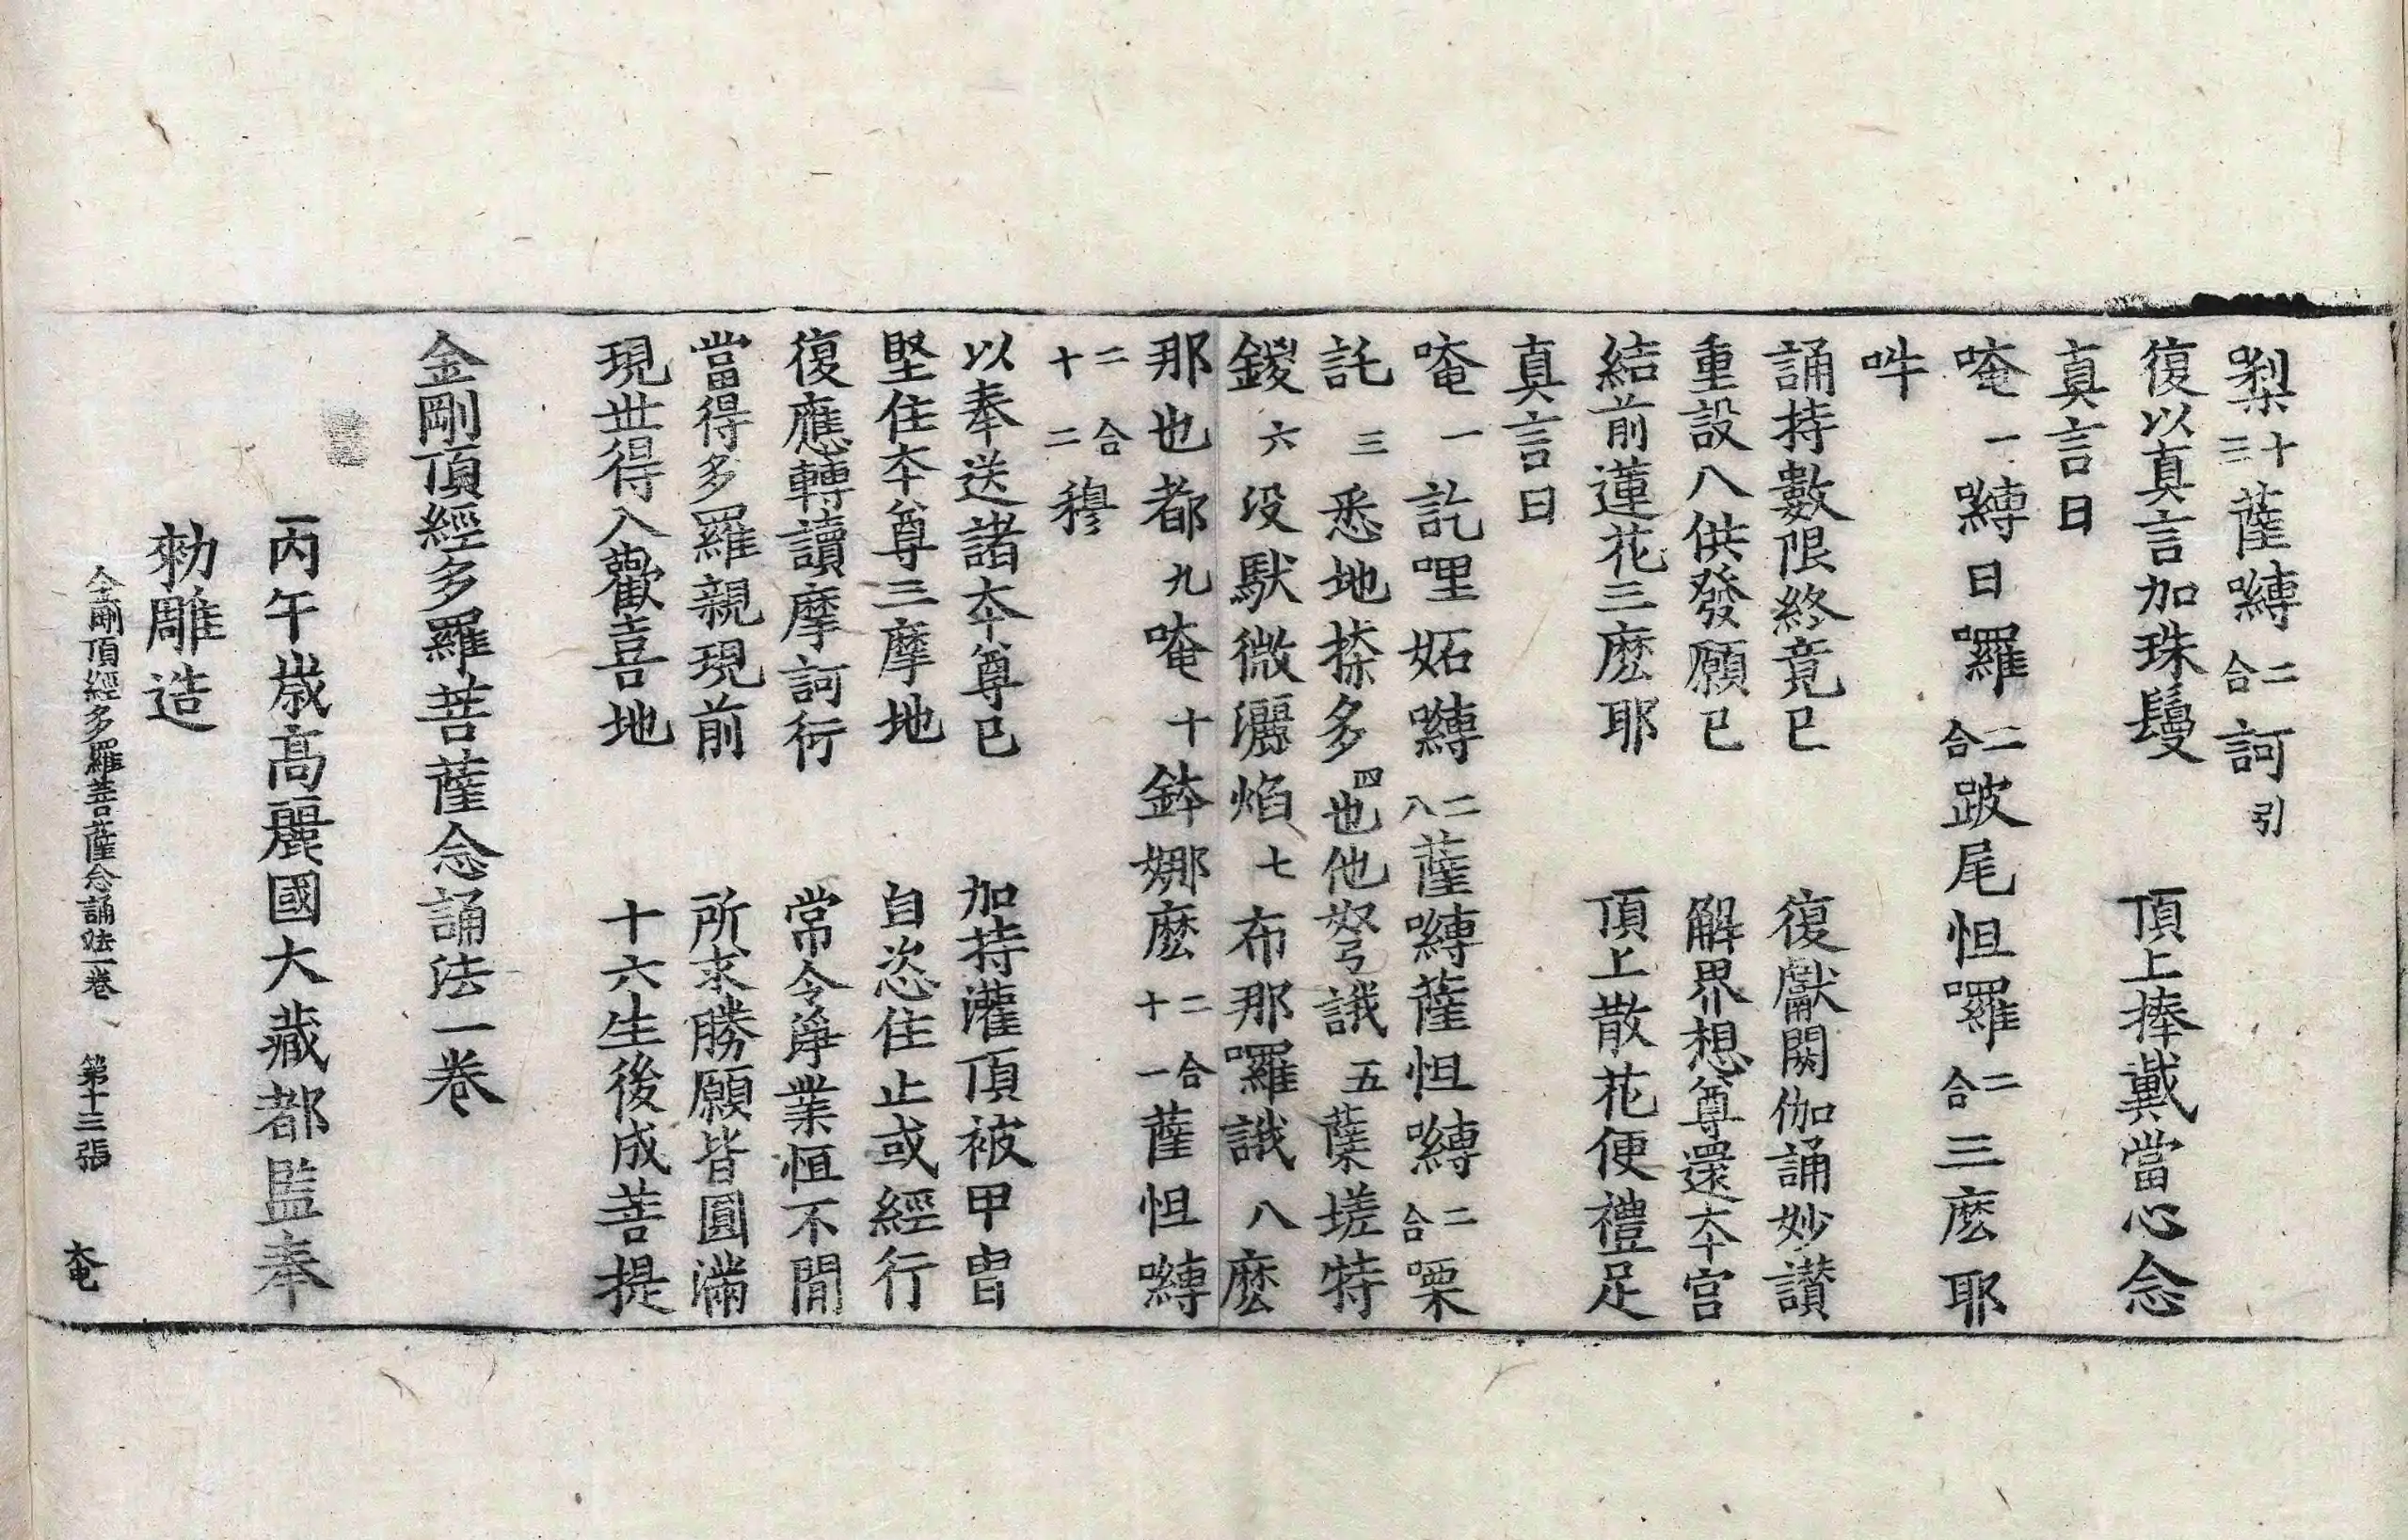 梨十三薩嚩二合訶引
復以真言加珠鬘　頂上捧戴當心念
真言曰
唵一嚩日囉二合跛尾怛囉二合三麽耶
吽
誦持數限終竟已　復獻閼伽誦妙讃
重設八供發願已　解界想尊還本宫
結前蓮花三麽耶　頂上散花便禮足
真言曰
唵一訖哩妬嚩二八薩嚩薩怛嚩二合㗚
託三悉地捺多四也他弩誐五蘖蹉特
鑁六没馱微灑焰七布那囉誐八麽
那也都九唵十鉢娜麽二合十一薩怛嚩
二合十二穆
以奉送諸本尊已　加持灌頂被甲胄
堅住本尊三摩地　自恣住止或經行
復應轉讀摩訶衍　常令淨業恒不間
當得多羅親現前　所求勝願皆圓滿
現丗得入歡喜地　十六生後成菩提
金剛頂經多羅菩薩念誦法一卷
丙午歲高麗國大藏都監奉
勑雕造
金剛頂經多羅菩薩念誦法一卷　第十三張　奄